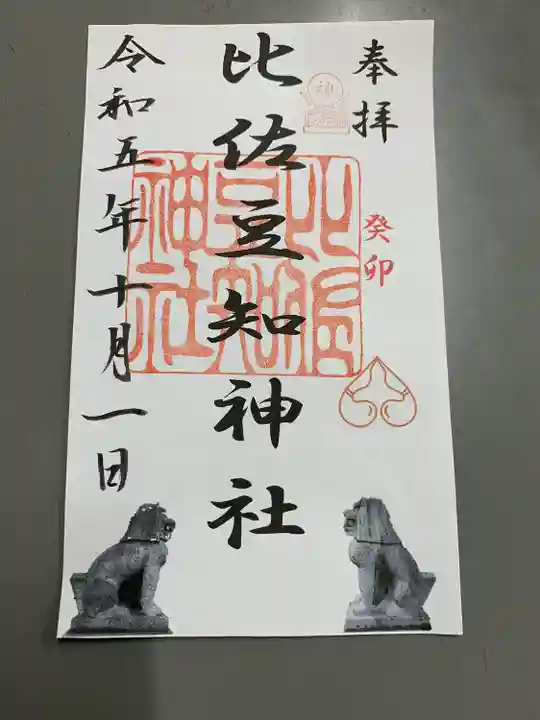 奉拝
癸卯
比佐豆知神社
比佐豆知神社
令和五年十月一日